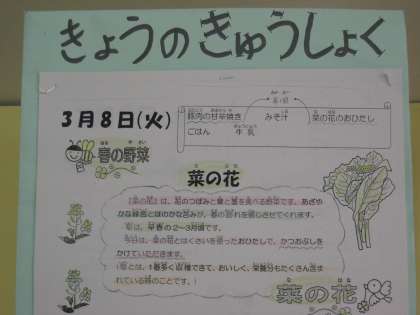 きょうのきゅうしょく
3月8日(火)
豚肉の甘辛焼き みそ汁 菜の花のおひたし
ごはん 牛乳
春の野菜
菜の花
『菜の花』は、花のつぼみと葉と茎を食べる野菜です。あざや
かな緑色とほのかな苦みが、春の訪れを感じさせてくれます。
旬は、早春の2〜3月頃です。
今日は、菜の花とはくさいを使ったおひたしで、かつおぶしを
かけていただきます。
(旬とは、1番多く収穫できて、おいしく、栄養分もたくさん含ま
れている時のことです。)
菜の花